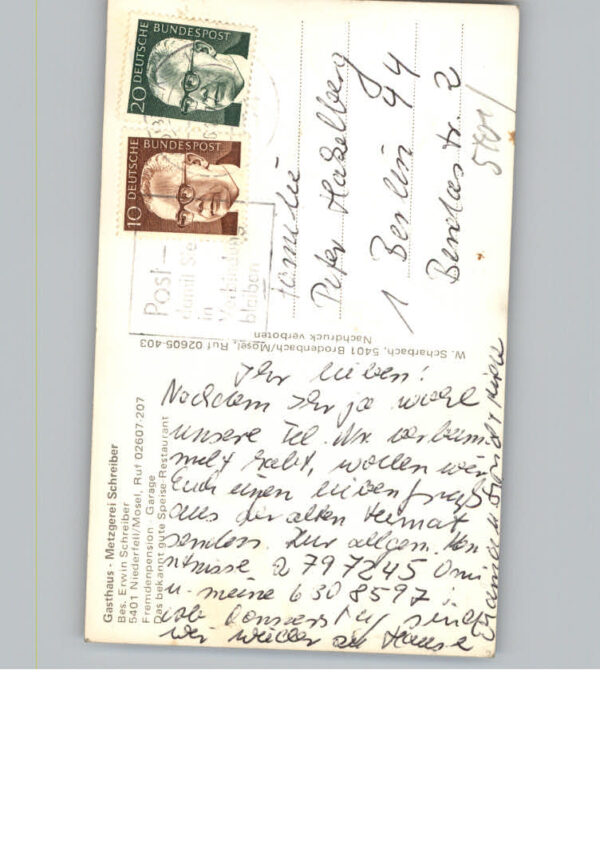 Gasthaus - Metzgerei Schreiber
Bes. Erwin Schreiber
5401 Niederfell/Mosel, Ruf 02607-207
Fremdenpension · Garage
Das bekannt gute Speise-Restaurant
Ihr lieben!
Nachdem Ihr ja wohl
unsere Tel. Nr. verbum
melt habt, wollen wir
Euch einen lieben Gruß
aus der alten Heimat
senden. Zur allgem. Ken
ntnisse 2 797245 Omi
u. meine 6 308597
ab Donnerstag sind
wir wieder zu Hause
W. Scharbach, 5401 Brodenbach/Mosel, Ruf 02605-403
Nachdruck verboten
20 DEUTSCHE BUNDESPOST
10 DEUTSCHE BUNDESPOST
Post-
damit Sie
in
Verbindung
bleiben
Familie
Peter Hakelberg
1 Berlin 44
Bendastr. 2
5401/